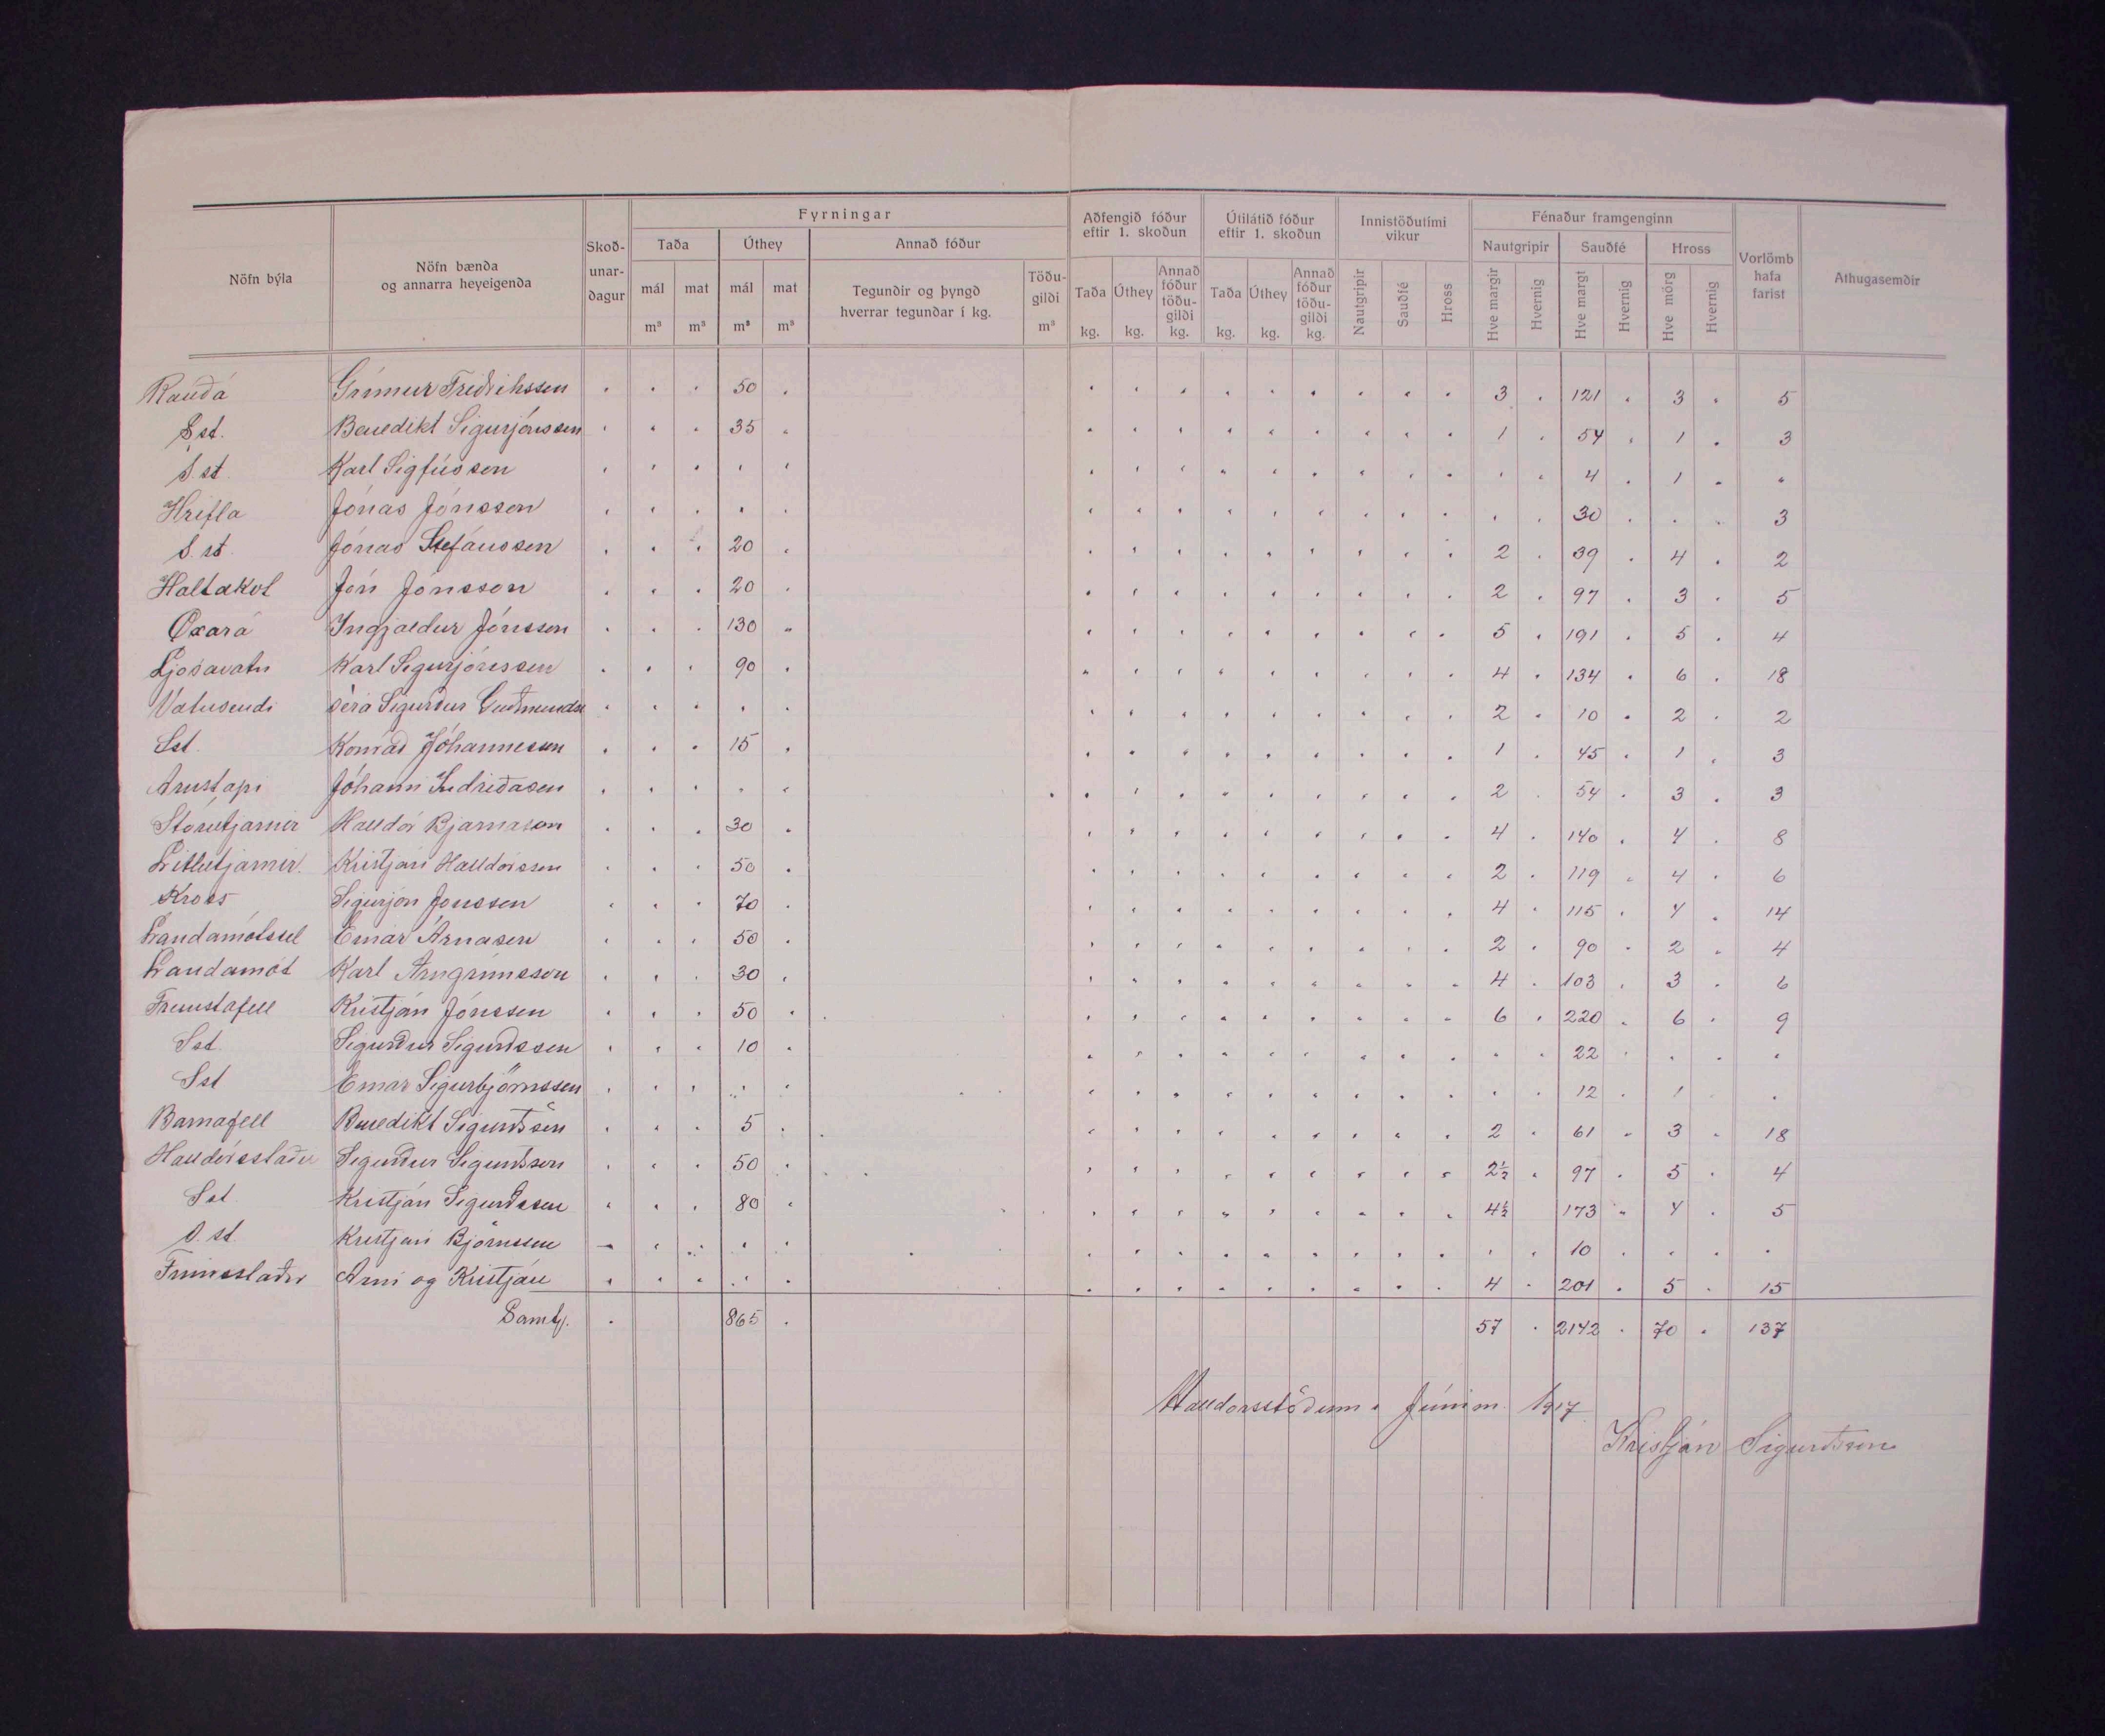 Nöfn býla | Nöfn bænda og annarra heyeigenda | Skoðunardagur | Fyrningar | Aðfengið fóður eftir 1. skoðun | Útilátið fóður eftir 1. skoðun | Innistöðutími vikur | Fénaður framgenginn | Vorlömb hafa farist | Athugasemdir
Taða | Úthey | Annað fóður | Nautgripir | Sauðfé | Hross
mál m³ | mat m³ | mál m³ | mat m³ | Tegundir og þyngd hverrar tegundar í kg. | Töðugildi m³ | Taða kg. | Úthey kg. | Annað fóður töðugildi kg. | Taða kg. | Úthey kg. | Annað fóður töðugildi kg. | Nautgripir | Sauðfé | Hross | Hve margir | Hvernig | Hve margt | Hvernig | Hve mörg | Hvernig
Rauðá Grímur Friðrikssen 50 3 121 3 5
S st. Benedikt Sigurjónssen 35 1 54 1 3
S. st. Karl Sigfússon 4 1
Hrifla Jónas Jónsson 30 3
S. st. Jónas Stefánssen 20 2 39 4 2
Holtakot Jón Jónsson 20 2 97 3 5
Oxará Ingjaldur Jónssen 130 5 191 5 4
Ljosavatn Karl Sigurjónssen 90 4 134 6 18
Vatnsendi séra Sigurður Guðmunds 2 10 2 2
Sst. Konráð Jóhannesson 15 1 45 1 3
Arnstapi Jóhann Indriðasen 2 54 3 3
Stórutjarnir Halldór Bjarnason 30 4 140 4 8
Litlutjarnir. Kristján Halldórssen 50 2 119 4 6
Kross Sigurjón Jonssen 70 4 115 4 14
Landamótssel Einar Árnasen 50 2 90 2 4
Landamót Karl Arngrímsson 30 4 103 3 6
Fremstafell Kristján Jónssen 50 6 220 6 9
Sst. Sigurður Sigurðssen 10 22
Sst Einar Sigurbjörnssen 12 1
Barnafell Benedikt Sigurðsson 5 2 61 3 18
Halldórsstaðir Sigurður Sigurðsson 50 2½ 97 5 4
Sst Kristján Sigurðssen 80 4½ 173 4 5
S. st. Kristján Björnssen 10
Finnsstaðir Arni og Kristján 4 201 5 15
Samt. 865 57 2142 70 137
Halldorsstöðum í Júní m. 1917
Kristján Sigurðsson